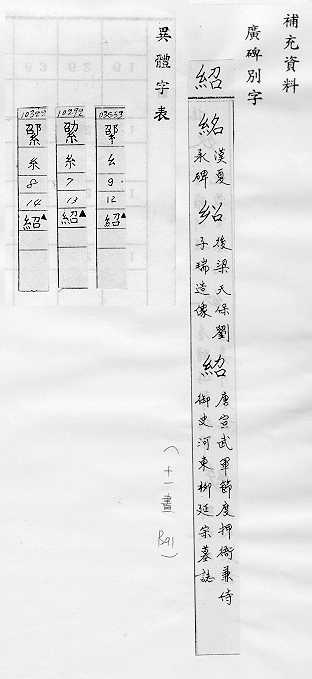 補充資料
廣碑別字
紹
漢夏承碑
紹
後梁天保劉子瑞造像
紹
唐宣武軍節度押衙兼侍御史河東柳延宗墓誌
(十一畫 P.291)
異體字表
糸
9
12
紹▲
10292
糸
7
13
紹▲
糸
8
14
紹▲